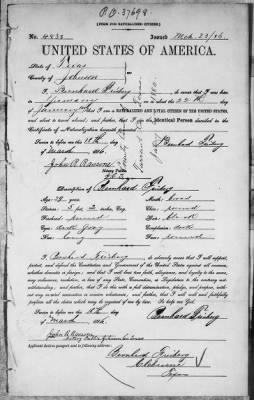 P.O. 37698
[FORM FOR NATURALIZED CITIZEN.]
No. 4838 Issued Mch. 23/86
UNITED STATES OF AMERICA.
State of Texas
County of Johnson
I, Bernhard Friberg, do swear that I was born
in Germany on the 22nd day of
January; that I am a NATURALIZED AND LOYAL CITIZEN OF THE UNITED STATES,
and about to travel abroad; and further, that I am the Identical Person described in the
Certificate of Naturalization herewith presented.
Sworn to before me this 18th day Bernhard Friberg
of March 1886
John R. Ransone
Notary Public
Description of Bernhard Friberg
Age: years Mouth: good
Stature: 5 feet 2 inches, Eng. Chin: round
Forehead: round Hair: black
Eyes: dark gray Complexion: dark
Nose: long Face: round
I, Bernhard Friberg, do solemnly swear that I will support,
protect, and defend the Constitution and Government of the United States against all enemies,
whether domestic or foreign; and that I will bear true faith, allegiance, and loyalty to the same,
any ordinance, resolution, or law of any State, Convention, or Legislature to the contrary not-
withstanding; and further, that I do this with a full determination, pledge, and purpose, with-
out any mental reservation or evasion whatsoever; and further, that I will well and faithfully
perform all the duties which may be required of me by law: So help me God.
Sworn to before me this 18th day Bernhard Friberg
of March, 1886
John R. Ransone
Notary Public
Applicant desires passport sent to following address:
Bernhard Friberg
Cleburne
Texas